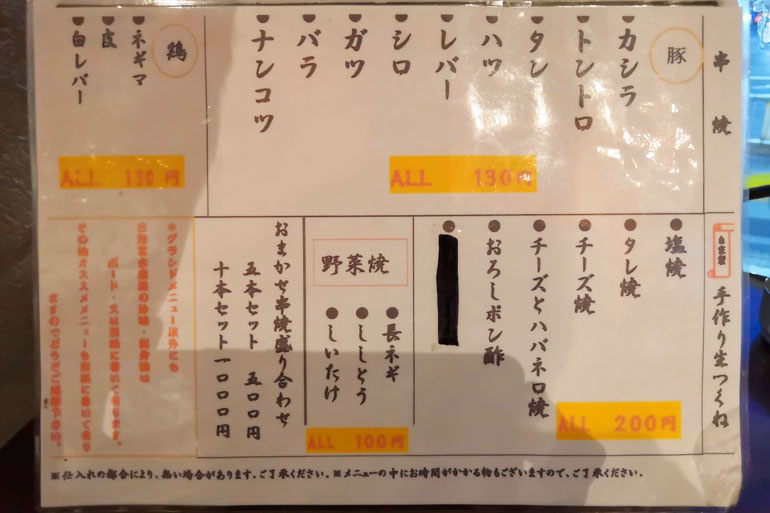 串焼
豚
●カシラ
●トントロ
●タン
●ハツ
●レバー
●シロ
●ガツ
●バラ
●ナンコツ
ALL 130円
鶏
●ネギマ
●皮
●白レバー
ALL 130円
自家製
手作り生つくね
●塩焼
●タレ焼
●チーズ焼
●チーズとハバネロ焼
●おろしポン酢
●
ALL 200円
野菜焼
●長ネギ
●ししとう
●しいたけ
ALL 100円
おまかせ串焼盛り合わせ
五本セット 五00円
十本セット 一000円
*グランドメニュー以外にも
その他オススメメニューも別紙に書いてあり
ますのでどうぞご覧下さい。
※仕入れの都合により、無い場合があります。ご了承ください。※メニューの中にお時間がかかる物もございますので、ご了承ください。